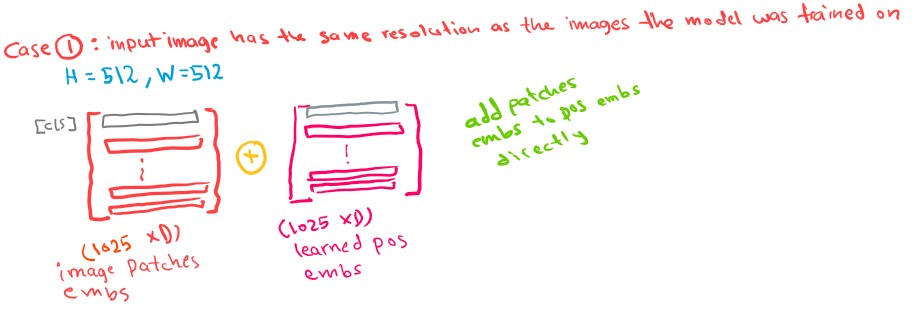 Case ① : input image has the same resolution as the images the model was trained on
H = 512, W=512
[cls]
+
add patches
embs to pos embs
directly
(1025 xD)
image Patches
embs
(1025 xD)
learned pos
embs